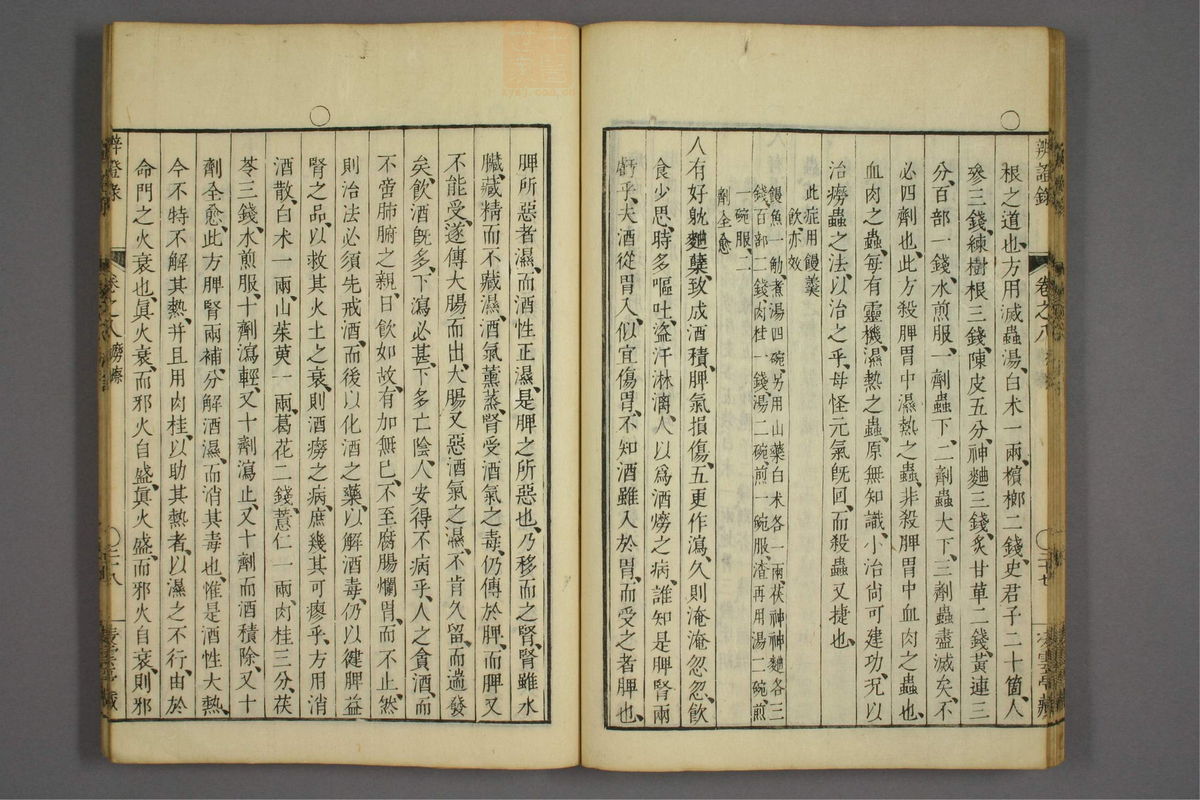 辨證錄
卷之八
根之道也、方用滅蟲湯、白术一兩、檳榔二錢、史君子二十箇、人
參三錢、練樹根三錢、陳皮五分、神麯三錢、炙甘草二錢、黃連三
分、百部一錢、水煎服、一劑蟲下、二劑蟲大下、三劑蟲盡滅矣、不
必四劑也、此方殺脾胃中濕熱之蟲、非殺脾胃中血肉之蟲也、
血肉之蟲、每有靈機、濕熱之蟲、原無知識、小治尚可建功、况以
治癆蟲之法、以治之乎、毋怪元氣既回、而殺蟲又捷也、
此症用饅羹
飲、亦效
饅魚一觔、煮湯四碗、另用山藥白术各一兩、茯神神麯各三
錢、百部二錢、肉桂一錢、湯二碗、煎一碗服、渣再用湯二碗、煎
一碗服、二
劑全愈
人有好躭麯櫱、致成酒積、脾氣損傷、五更作瀉、久則淹淹忽忽、飲
食少思、時多嘔吐、盜汗淋漓、人以爲酒癆之病、誰知是脾腎兩
虧乎、夫酒從胃入、似宜傷胃、不知酒雖入於胃、而受之者脾也、
脾所惡者濕、而酒性正濕、是脾之所惡也、乃移而之腎、腎雖水
臟、藏精而不藏濕、酒氣薰蒸、腎受酒氣之毒、仍傳於脾、而脾又
不能受、遂傳大腸而出、大腸又惡酒氣之濕、不肯久留、而遄發
矣、飲酒既多、下瀉必甚、下多亡陰、人安得不病乎、人之貪酒、而
不啻肺腑之親、日飲如故、有加無已、不至腐腸爛胃、而不止、然
則治法必須先戒酒、而後以化酒之藥、以解酒毒、仍以健脾益
腎之品、以救其火土之衰、則酒癆之病、庶幾其可瘳乎、方用消
酒散、白术一兩、山茱萸一兩、葛花二錢、薏仁一兩、肉桂三分、茯
苓三錢、水煎服、十劑瀉輕、又十劑瀉止、又十劑而酒積除、又十
劑全愈、此方脾腎兩補、分解酒濕、而消其毒也、惟是酒性大熱、
今不特不解其熱、并且用肉桂、以助其熱者、以濕之不行、由於
命門之火衰也、眞火衰、而邪火自盛、眞火盛、而邪火自衰、則邪
卷之八 癆瘵
三十八